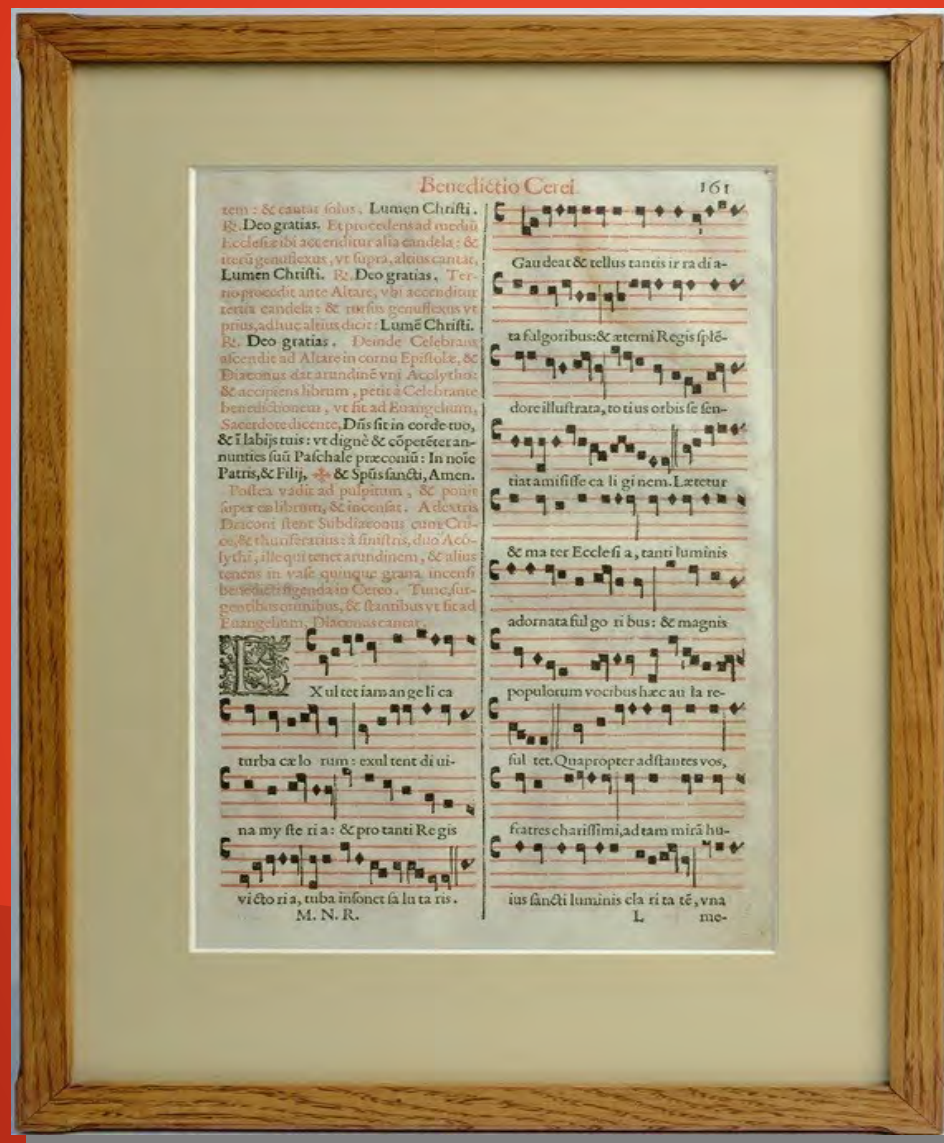 Benedictio Cerei. 161
tem : & cantat solus, Lumen Christi.
℟. Deo gratias. Et procedens ad mediũ
Ecclesiæ ibi accenditur alia candela : &
iterũ genuflexus, vt supra, altius cantat,
Lumen Christi. ℟. Deo gratias. Ter-
tio procedit ante Altare, vbi accenditur
tertia candela : & rursus genuflexus vt
prius, adhuc altius dicit : Lumẽ Christi.
℟. Deo gratias. Deinde Celebrans
ascendit ad Altare in cornu Epistolæ, &
Diaconus dat arundinẽ vni Acolytho:
& accipiens librum, petit à Celebrante
benedictionem, vt fit ad Euangelium,
Sacerdote dicente, Dñs sit in corde tuo,
& ĩ labijs tuis : vt dignè & cõpetẽter an-
nunties suũ Paschale præconiũ : In noĩe
Patris, & Filij, ✠ & Spũs sancti, Amen.
Postea vadit ad pulpitum, & ponit
super eo librum, & incensat. A dextris
Diaconi stent Subdiaconus cum Cru-
ce, & thuriferarius : à sinistris, duo Acó-
lythi, ille qui tenet arundinem, & alius
tenens in vase quinque grana incensi
benedicti figenda in Cereo. Tunc, sur-
gentibus omnibus, & stantibus vt fit ad
Euangelium, Diaconus cantat.
EXul tet iam an ge li ca
turba cæ lo rum : exul tent di ui-
na my ste ri a : & pro tanti Re gis
vi cto ri a, tuba insonet sa lu ta ris.
M. N. R.
Gau deat & tellus tantis ir ra di a-
ta fulgoribus: & æterni Regis splẽ-
dore illustrata, to tius orbis se sen-
tiat amisisse ca li gi nem. Lætetur
& ma ter Ecclesi a, tanti luminis
adornata ful go ri bus : & magnis
populorum vocibus hæc au la re-
sul tet. Quapropter adstantes vos,
fratres charissimi, ad tam mirã hu-
ius sancti luminis cla ri ta tẽ, vna
L me-